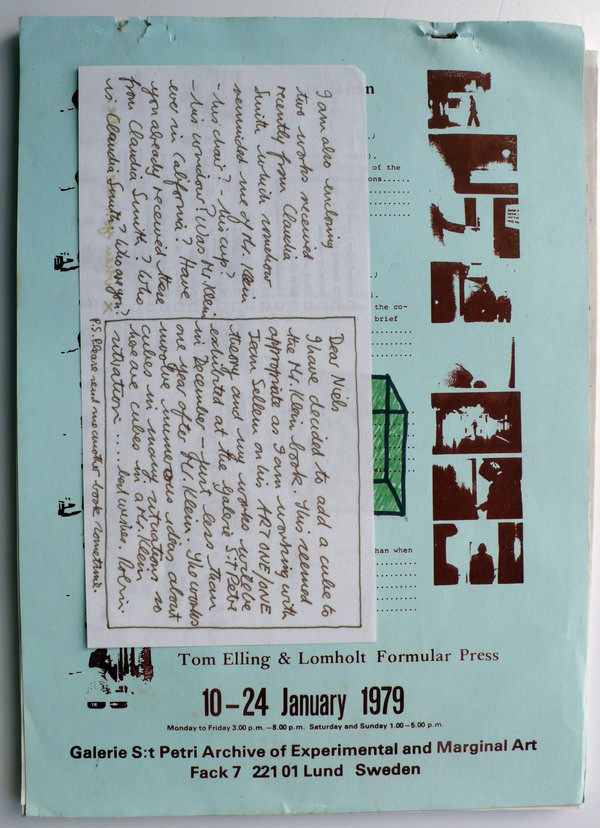 I am also enclosing
two works received
recently from Claudia
Smith which somehow
reminded me of Mr. Klein
- his chair? - his cup?
- his window? Was Mr. Klein
ever in California? Have
you already received these
from Claudia Smith? Who
is Claudia Smith? Who are you?
Dear Niels
I have decided to add a cube to
the Mr. Klein book. This seemed
appropriate as I am working with
Jean Sellem on his ART ONE/ONE
theory and my works will be
exhibited at the Galerie S:t Petri
in December - just less than
one year after Mr. Klein. The works
involve numerous ideas about
cubes in many situations so
here are cubes in a Mr. Klein
situation .... best wishes. Robin
P.S. Please send me another book sometime.
n
.)
).
of the
ons.....
.)
).
the co-
brief
han when
Tom Elling & Lomholt Formular Press
10–24 January 1979
Monday to Friday 3.00 p.m. – 8.00 p.m. Saturday and Sunday 1.00 – 5.00 p.m.
Galerie S:t Petri Archive of Experimental and Marginal Art
Fack 7 221 01 Lund Sweden